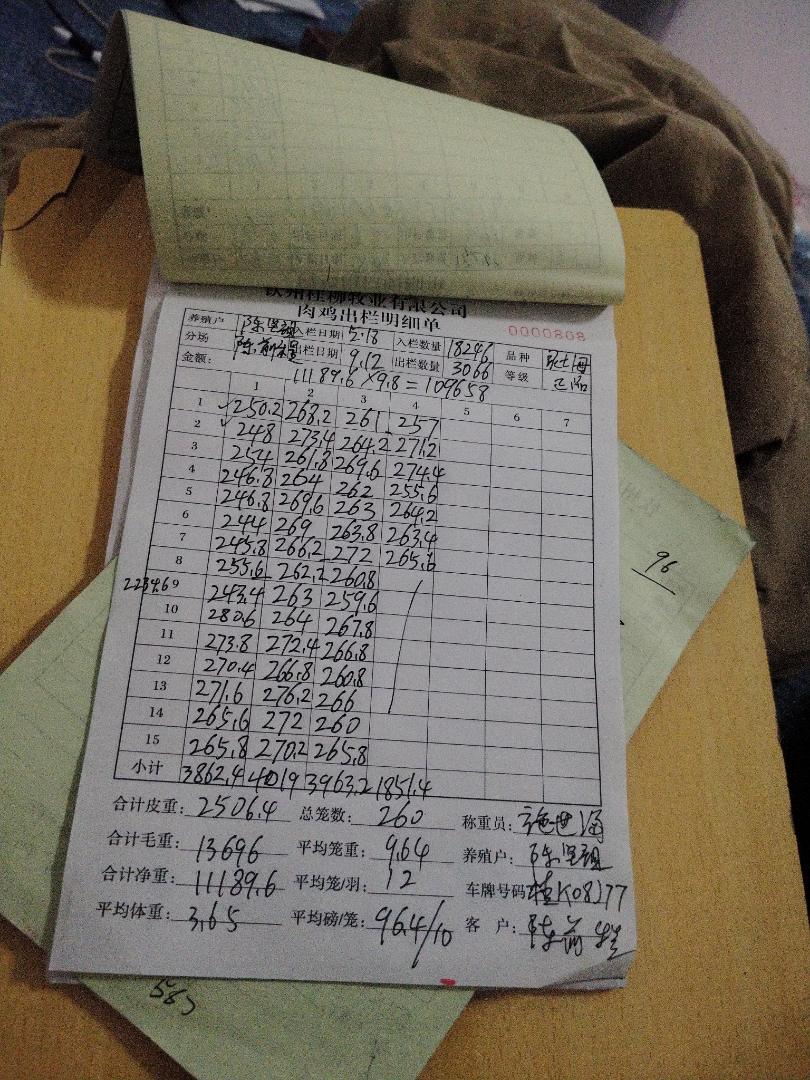 钦州桂柳牧业有限公司
肉鸡出栏明细单
0000808
养殖户 入栏日期 5.18 入栏数量 18246 品种
分场 陈前程 出栏日期 9.12 出栏数量 3066 等级
金额: 11189.6×9.8=109658
1 2 3 4 5 6 7
1 250.2 268.2 261 257
2 248 273.4 264.2 271.2
3 254 261.8 269.6 274.4
4 246.8 264 262 255.6
5 246.8 269.6 263 264.2
6 244 269 263.8 263.4
7 245.8 266.2 272 265.6
8 255.6 262.2 260.8
22346 9 243.4 263 259.6
10 280.6 264 267.8
11 273.8 272.4 266.8
12 270.4 266.8 260.8
13 271.6 276.2 266
14 265.6 272 260
15 265.8 270.2 265.8
小计 3862.4 4019 3963.2 1851.4
合计皮重: 2506.4 总笼数: 260 称重员:
合计毛重: 13696 平均笼重: 9.64 养殖户:
合计净重: 11189.6 平均笼/羽: 12 车牌号码 桂K08177
平均体重: 3.65 平均磅/笼: 96.4/10 客 户: 陈前程
96
585